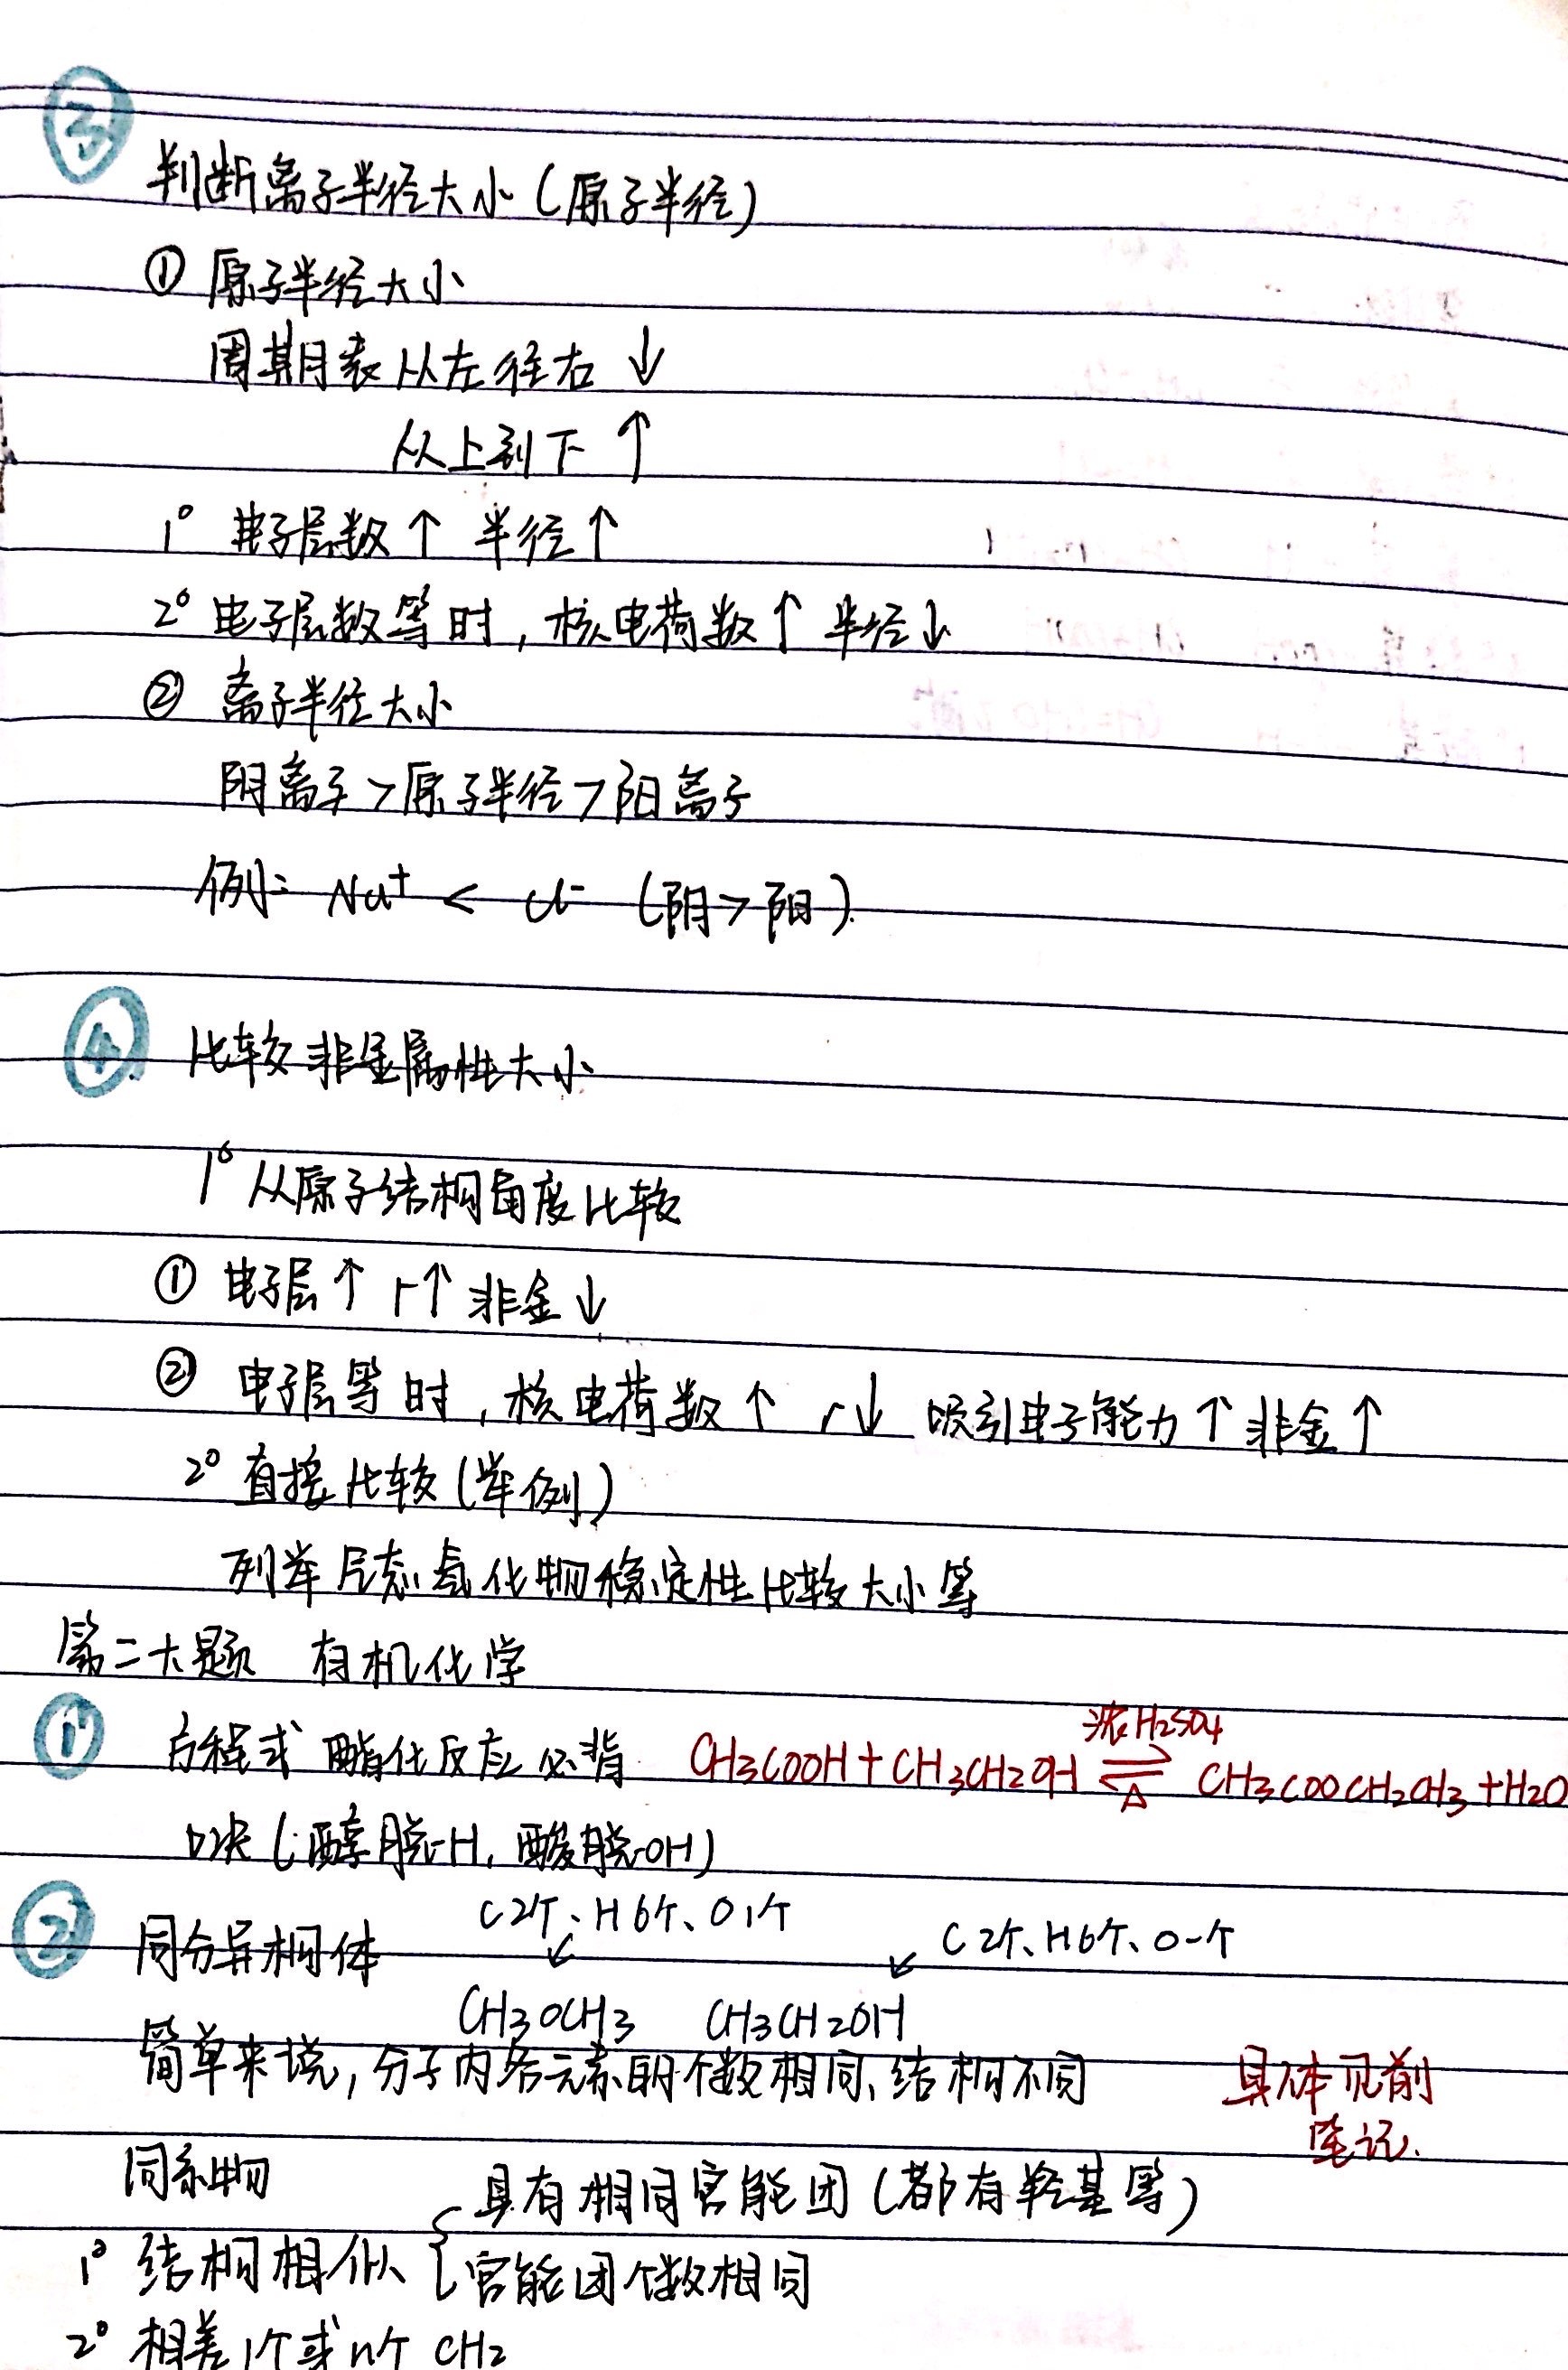 ③
判断离子半径大小(原子半径)
① 原子半径大小
周期表从左往右 ↓
从上到下 ↑
1° 电子层数↑ 半径↑
2° 电子层数等时,核电荷数↑ 半径↓
② 离子半径大小
阴离子>原子半径>阳离子
例: Na⁺ < Cl⁻ (阴>阳).
④ 比较非金属性大小
1° 从原子结构角度比较
① 电子层↑ r↑ 非金↓
② 电子层等时,核电荷数↑ r↓ 吸引电子能力↑ 非金↑
2° 直接比较(举例)
列举气态氢化物稳定性比较大小等
第二大题 有机化学
浓H2SO4
① 方程式 酯化反应必背 CH3COOH+CH3CH2OH ⇌ CH3COOCH2CH3+H2O
△
口决(:醇脱-H,酸脱-OH)
C2个、H6个、O1个
② 同分异构体 ↙ ↙ C2个、H6个、O一个
CH3OCH3 CH3CH2OH
简单来说,分子内各元素的个数相同、结构不同 具体见前
笔记.
同系物
具有相同官能团(都有羟基等)
1° 结构相似 { 官能团个数相同
2° 相差1个或n个 CH2